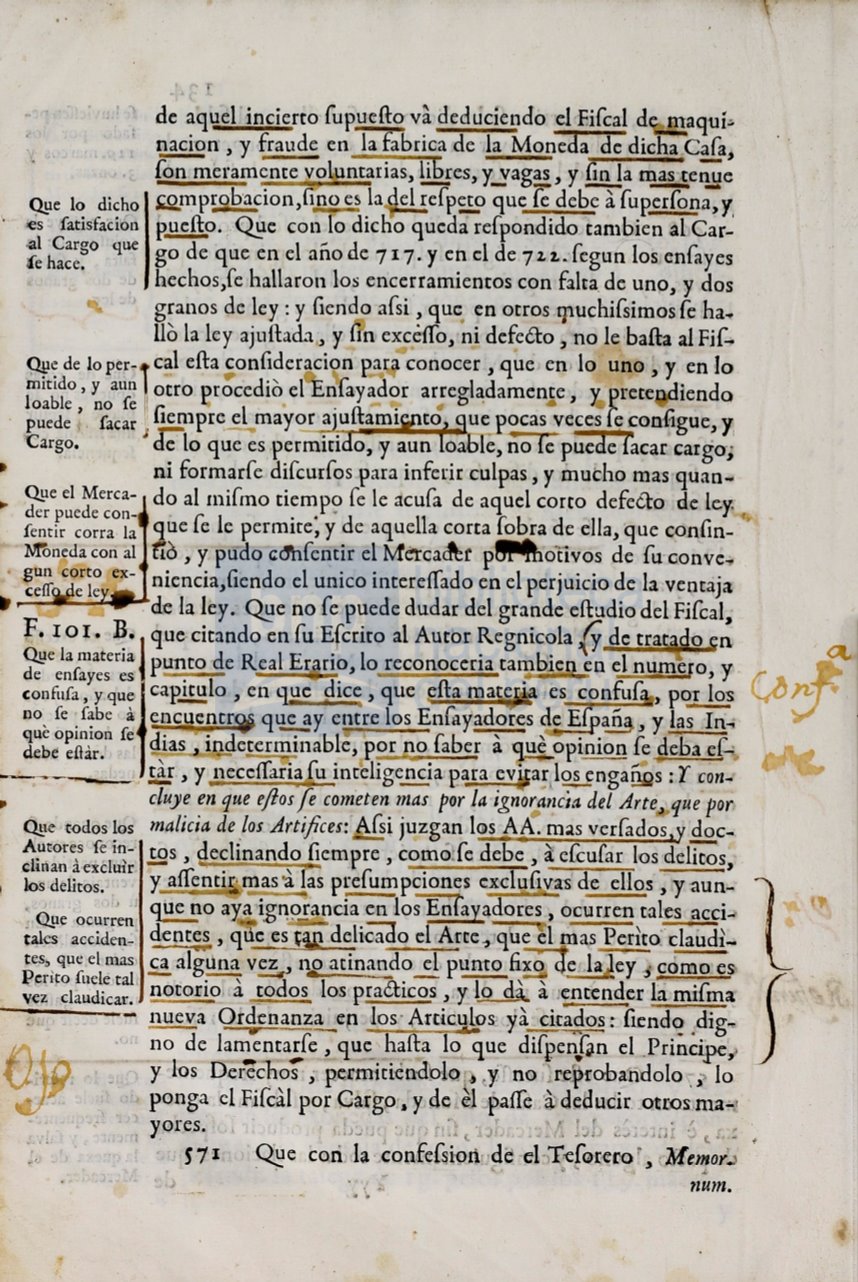 de aquel incierto supuesto và deduciendo el Fiscal de maqui-
nacion, y fraude en la fabrica de la Moneda de dicha Casa,
son meramente voluntarias, libres, y vagas, y sin la mas tenue
comprobacion, sino es la del respeto que se debe à su persona, y
puesto. Que con lo dicho queda respondido tambien al Car-
go de que en el año de 717. y en el de 722. segun los ensayes
hechos, se hallaron los encerramientos con falta de uno, y dos
granos de ley: y siendo assi, que en otros muchissimos se ha-
llò la ley ajustada, y sin excesso, ni defecto, no le basta al Fis-
cal esta consideracion para conocer, que en lo uno, y en lo
otro procediò el Ensayador arregladamente, y pretendiendo
siempre el mayor ajustamiento, que pocas veces se consigue, y
de lo que es permitido, y aun loable, no se puede sacar cargo,
ni formarse discursos para inferir culpas, y mucho mas quan-
do al mismo tiempo se le acusa de aquel corto defecto de ley
que se le permite, y de aquella corta sobra de ella, que consin-
tiò, y pudo consentir el Mercader por motivos de su conve-
niencia, siendo el unico interessado en el perjuicio de la ventaja
de la ley. Que no se puede dudar del grande estudio del Fiscal,
que citando en su Escrito al Autor Regnicola, y de tratado en
punto de Real Erario, lo reconoceria tambien en el numero, y
capitulo, en que dice, que esta materia es confusa, por los
encuentros que ay entre los Ensayadores de España, y las In-
dias, indeterminable, por no saber à què opinion se deba es-
tàr, y necessaria su inteligencia para evitar los engaños: Y con-
cluye en que estos se cometen mas por la ignorancia del Arte, que por
malicia de los Artifices: Assi juzgan los AA. mas versados, y doc-
tos, declinando siempre, como se debe, à escusar los delitos,
y assentir mas à las presumpciones exclusivas de ellos, y aun-
que no aya ignorancia en los Ensayadores, ocurren tales acci-
dentes, que es tan delicado el Arte, que el mas Perito claudi-
ca alguna vez, no atinando el punto fixo de la ley, como es
notorio à todos los practicos, y lo dà à entender la misma
nueva Ordenanza en los Articulos yà citados: siendo dig-
no de lamentarse, que hasta lo que dispensan el Principe,
y los Derechos, permitiendolo, y no reprobandolo, lo
ponga el Fiscàl por Cargo, y de èl passe à deducir otros ma-
yores.
571 Que con la confession de el Tesorero, Memor.
num.
Que lo dicho
es satisfacion
al Cargo que
se hace.
Que de lo per-
mitido, y aun
loable, no se
puede sacar
Cargo.
Que el Merca-
der puede con-
sentir corra la
Moneda con al
gun corto ex-
cesso de ley.
F. 101. B.
Que la materia
de ensayes es
confusa, y que
no se sabe à
què opinion se
debe estàr.
Que todos los
Autores se in-
clinan à excluir
los delitos.
Que ocurren
tales acciden-
tes, que el mas
Perito suele tal
vez claudicar.
Ojo
Conf.a